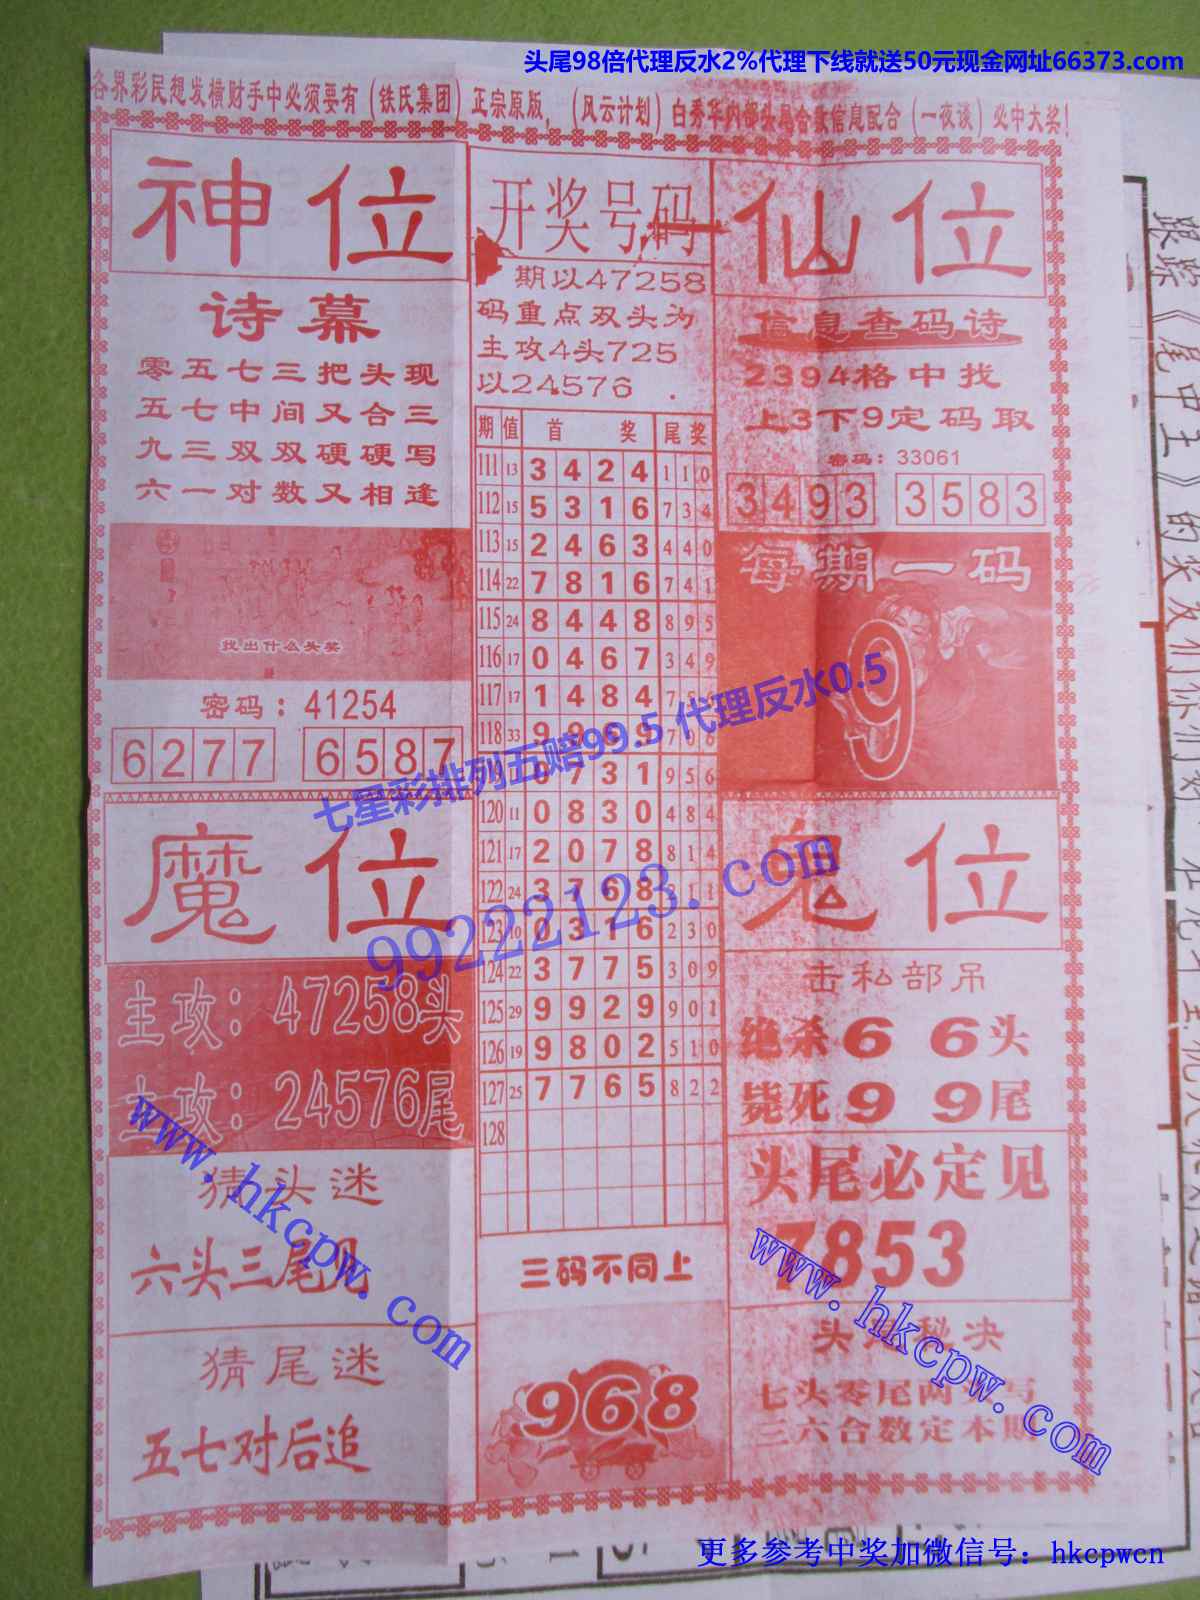 头尾98倍代理反水2%代理下线就送50元现金网址66373.com
各界彩民想发横财手中必须要有（铁氏集团）正宗原版，（风云计划）白秀华内部头尾合数信息配合（一夜谈）必中大奖！
神位
诗幕
零五七三把头现
五七中间又合三
九三双双硬硬写
六一对数又相逢
找出什么头奖
密码：41254
6277 6587
开奖号码
期以47258
码重点双头为
主攻4头725
以24576 .
期 值 首 奖 尾 奖
111 13 3 4 2 4 1 1 0
112 15 5 3 1 6 7 3 4
113 15 2 4 6 3 4 4 0
114 22 7 8 1 6 7 4 1
115 24 8 4 4 8 8 9 5
116 17 0 4 6 7 3 4 9
117 17 1 4 8 4 7 5
118 33 9 9 7 0 6
7 3 1 9 5 6
120 11 0 8 3 0 4 8 4
121 17 2 0 7 8 8 1 4
122 24 3 7 6 8 1 1
123 10 0 3 1 6 2 3 0
124 22 3 7 7 5 3 0 9
125 29 9 9 2 9 9 0 1
126 19 9 8 0 2 5 1 0
127 25 7 7 6 5 8 2 2
128
三码不同上
968
仙位
信息查码诗
2394格中找
上3下9定码取
密码：33061
3493 3583
每期一码
9
魔位
主攻：47258头
主攻：24576尾
猜头迷
六头三尾见
猜尾迷
五七对后追
鬼位
击私部吊
绝杀66头
毙死99尾
头尾必定见
7853
头尾秘决
七头零尾两 写
三六合数定本期
七星彩排列五赔99.5 代理反水0.5
99222123.com
www.hkcpw.com
www.hkcpw.com
更多参考中奖加微信号：hkcpwcn